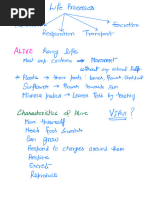 Life Processes
Excretion
Respiration
Transport
ALIVE Having life
Most imp criteria → Movement
without any external help
* Plants → Have parts: leaves, Flowers
Sunflower → Flower towards sun
Mimosa pudica → Leaves fold by touching
Characteristics of Alive
Move themself
Need Food Sunlight
Can grow
Respond to changes around them
Respire
Excrete
Reproduce